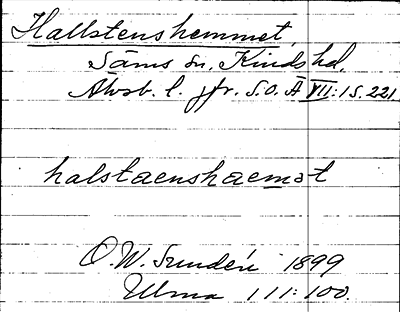 Hallstenshemmet,
Säms sn, Kinds hd,
Älvsb. l. jfr. S.O.Ä VII:1 s. 221.
halstaenshaemat
O.W. Sundén 1899
Ulma 111:100.